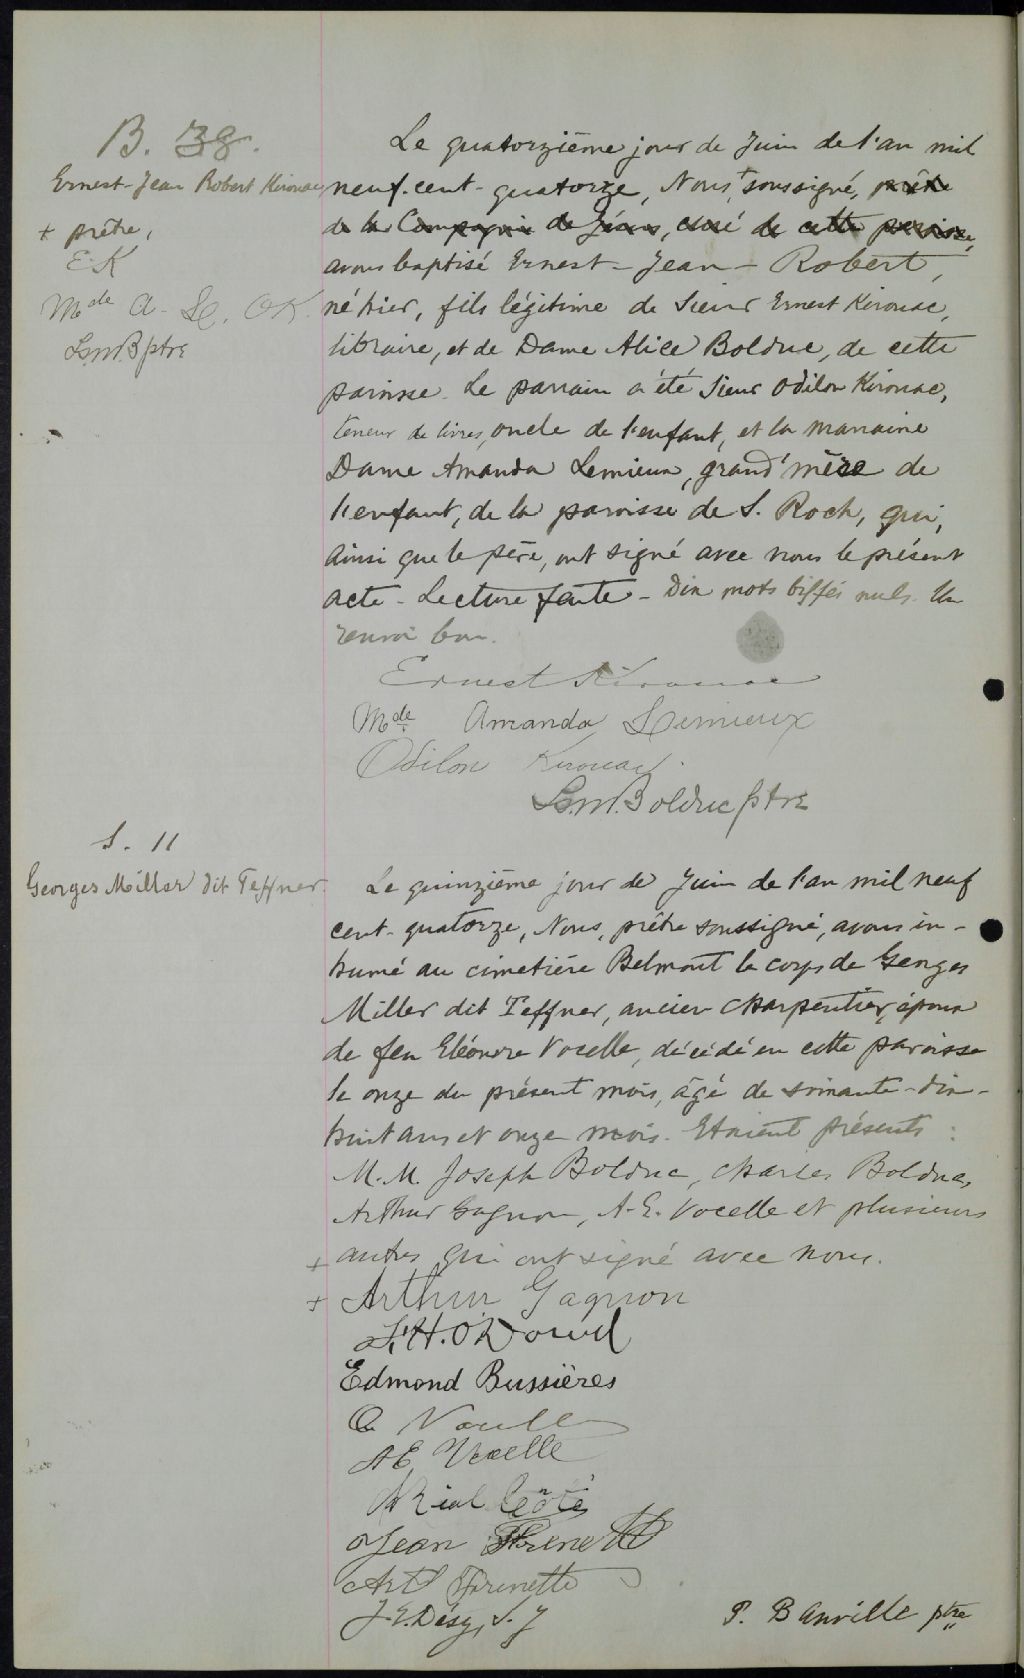 B. 38.
Ernest-Jean Robert Kirouac
+ prêtre,
E K
Mde A. L. O K.
L.m.B ptre
Le quatorzième jour de Juin de l'an mil
neuf-cent-quatorze, Nous,+ soussigné, prêtre
de la Compagnie de Jésus, curé de cette paroisse,
avons baptisé Ernest-Jean-Robert,
né hier, fils légitime de Sieur Ernest Kirouac,
libraire, et de Dame Alice Bolduc, de cette
paroisse. Le parrain a été Sieur Odilon Kirouac,
teneur de livres, oncle de l'enfant, et la marraine
Dame Amanda Lemieux, grand'mère de
l'enfant, de la paroisse de S. Roch, qui,
ainsi que le père, ont signé avec nous le présent
acte - Lecture faite - Dix mots biffés nuls. Un
renvoi bon.
Ernest Kirouac
Mde Amanda Lemieux
Odilon Kirouac
L.m.Bolduc ptre
S. 11
Georges Miller dit Teffner.
Le quinzième jour de Juin de l'an mil neuf
cent-quatorze, Nous, prêtre soussigné, avons in-
humé au cimetière Belmont le corps de Georges
Miller dit Teffner, ancien charpentier, époux
de feu Eléonore Vocelle, décédé en cette paroisse
le onze du présent mois, âgé de soixante-dix-
huit ans et onze mois. Etaient présents :
M.M. Joseph Bolduc, Charles Bolduc,
Arthur Gagnon, A-E. Vocelle et plusieurs
+ autres qui ont signé avec nous.
+ Arthur Gagnon
Edmond Bussières
A E Vocelle
Jean Frenette
Art Frenette
J-E.Désy, S. J
P. Banville ptre